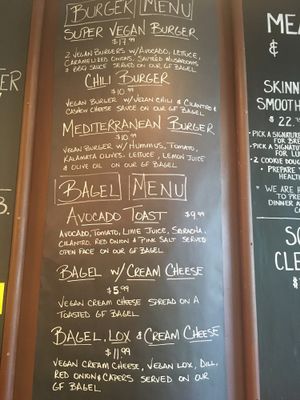 BURGER MENU
SUPER VEGAN BURGER
$17.99
2 VEGAN BURGERS W/ AVOCADO, LETUCE,
CARAMELIZED ONIONS, SAUTEED MUSHROOMS
& BBQ SAUCE SERVED ON OUR GF BAGEL
CHILI BURGER
$10.99
VEGAN BURGER W/ VEGAN CHILI & CILANTRO &
CASHEW CHEESE SAUCE ON OUR GF BAGEL
MEDITERRANEAN BURGER
$10.99
VEGAN BURGER W/ HUMMUS, TOMATO,
KALAMATA OLIVES, LETTUCE, LEMON JUICE
& OLIVE OIL ON OUR GF BAGEL
BAGEL MENU
AVOCADO TOAST $9.99
AVOCADO, TOMATO, LIME JUICE, SRIRACHA,
CILANTRO, RED ONION & PINK SALT SERVED
OPEN FACE ON OUR GF BAGEL
BAGEL W/ CREAM CHEESE
$5.99
VEGAN CREAM CHEESE SPREAD ON A
TOASTED GF BAGEL
BAGEL, LOX & CREAM CHEESE
$11.99
VEGAN CREAM CHEESE, VEGAN LOX, DILL,
RED ONION & CAPERS SERVED ON OUR
GF BAGEL
ER
B.
MEA
&
SKINN
SMOOTH
$22.
• PICK A SIGNAT
FOR BRE
• PICK A SIGNAT
FOR LU
• 2 COOKIE DOU
• PREPARE
HEALT
* WE ARE
TO PREP
DINNER A
C
SO
CLE